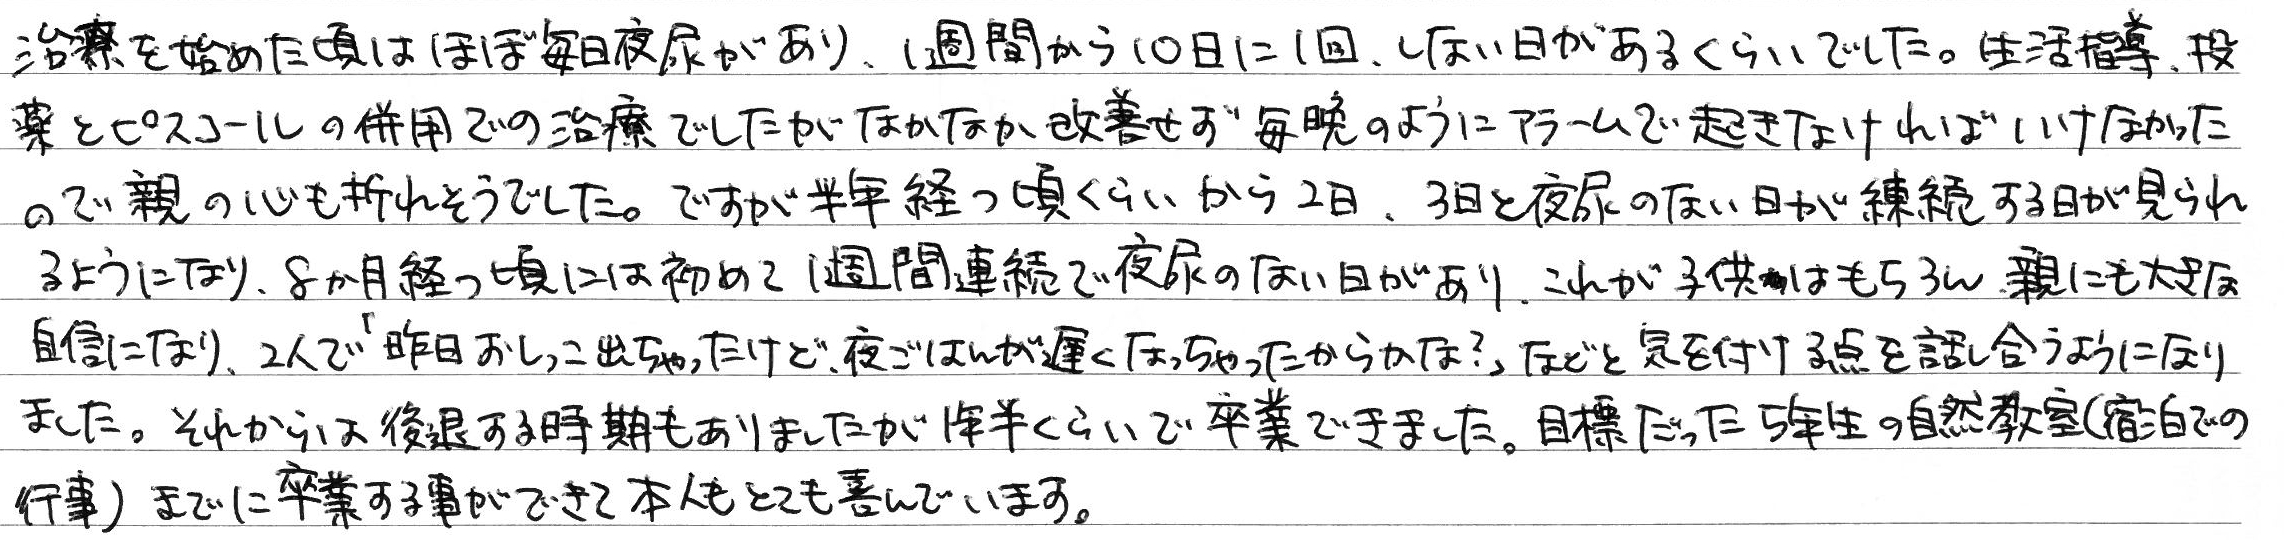 治療を始めた頃はほぼ毎日夜尿があり、1週間から10日に1回、しない日があるくらいでした。生活指導、投
薬とピスコールの併用での治療でしたがなかなか改善せず毎晩のようにアラームで起きなければいけなかった
ので親の心も折れそうでした。ですが半年経つ頃くらいから2日、3日と夜尿のない日が練続する日が見られ
るようになり、8か月経つ頃には初めて1週間連続で夜尿のない日があり、これが子供はもちろん親にも大きな
自信になり、2人で「昨日おしっこ出ちゃったけど、夜ごはんが遅くなっちゃったからかな?」などと気を付ける点を話し合うようになり
ました。それからは後退する時期もありましたが1年半くらいで卒業できました。目標だった5年生の自然教室(宿泊での
行事)までに卒業する事ができて本人もとても喜んでいます。